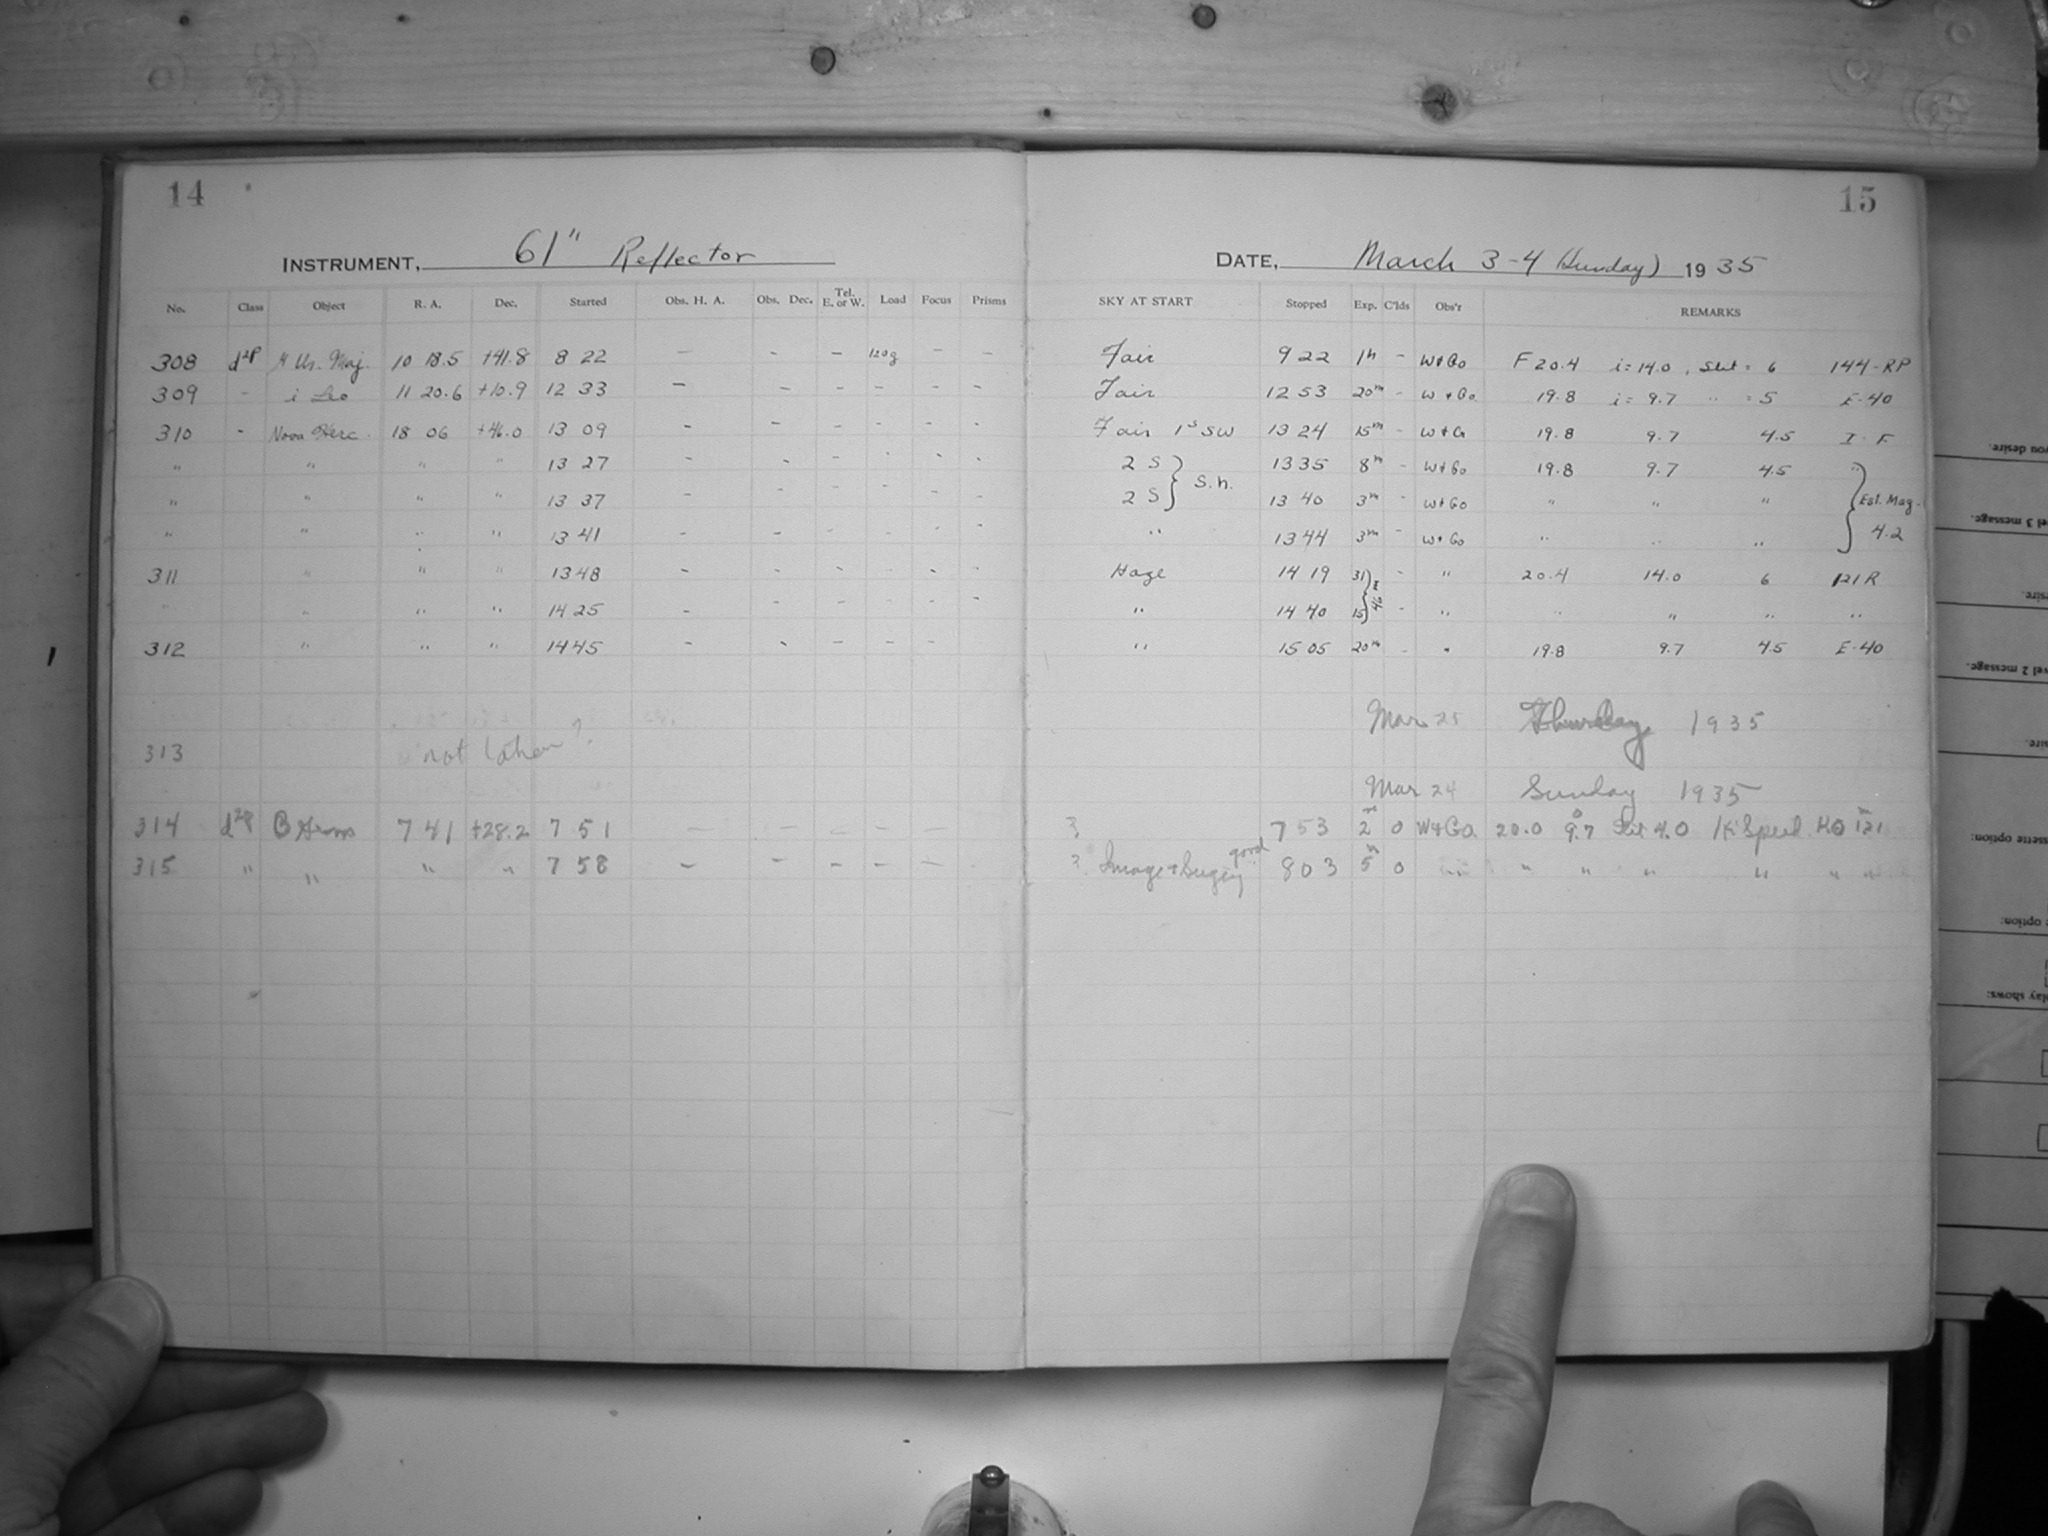 14
15
INSTRUMENT, 61" Reflector
DATE, March 3-4 (Sunday) 1935
No. Class Object R. A. Dec. Started Obs. H. A. Obs. Dec. Tel. E. or W. Load Focus Prisms SKY AT START Stopped Exp. C'lds Obs'r REMARKS
308 d2P Ur. Maj. 10 18.5 +41.8 8 22 — - - 120g - - Fair 9 22 1h - W+Go F 20.4 i=14.0, Slit = 6 144-RP
309 - i Leo 11 20.6 +10.9 12 33 - - - - - - Fair 12 53 20m - W+Go. 19.8 i= 9.7 " = 5 E-40
310 - Nova Herc. 18 06 +46.0 13 09 - - - - - - Fair 1s SW 13 24 15m - W+G 19.8 9.7 4.5 I-F
" " " " 13 27 - - - - - - 2 S } S.h. 13 35 8m - W+Go 19.8 9.7 4.5 "
" " " " 13 37 - - - - - - 2 S 13 40 3m - W+Go " " " } Est. Mag.
" " " " 13 41 - - - - - - " 13 44 3m - W+Go " " " 4.2
311 " " " 13 48 - - - - - - Haze 14 19 31 } 46m - " 20.4 14.0 6 121R
" " " " 14 25 - - - - - - " 14 40 15 - " " " " "
312 " " " 14 45 - - - - - " 15 05 20m - " 19.8 9.7 4.5 E-40
Mar 25 1935
313 not taken?
Mar 24 Sunday 1935
314 d2P 7 41 +28.2 7 51 — — — — — ? 7 53 2m 0 W+Go. 20.0 9.7 Slit 4.0 121
315 " " " " 7 58 - - - - - ? Image + good 8 03 5m 0 " " " " " " "
you desire.
vel 3 message.
esire.
vel 2 message.
sire.
ssette option:
option:
play shows: